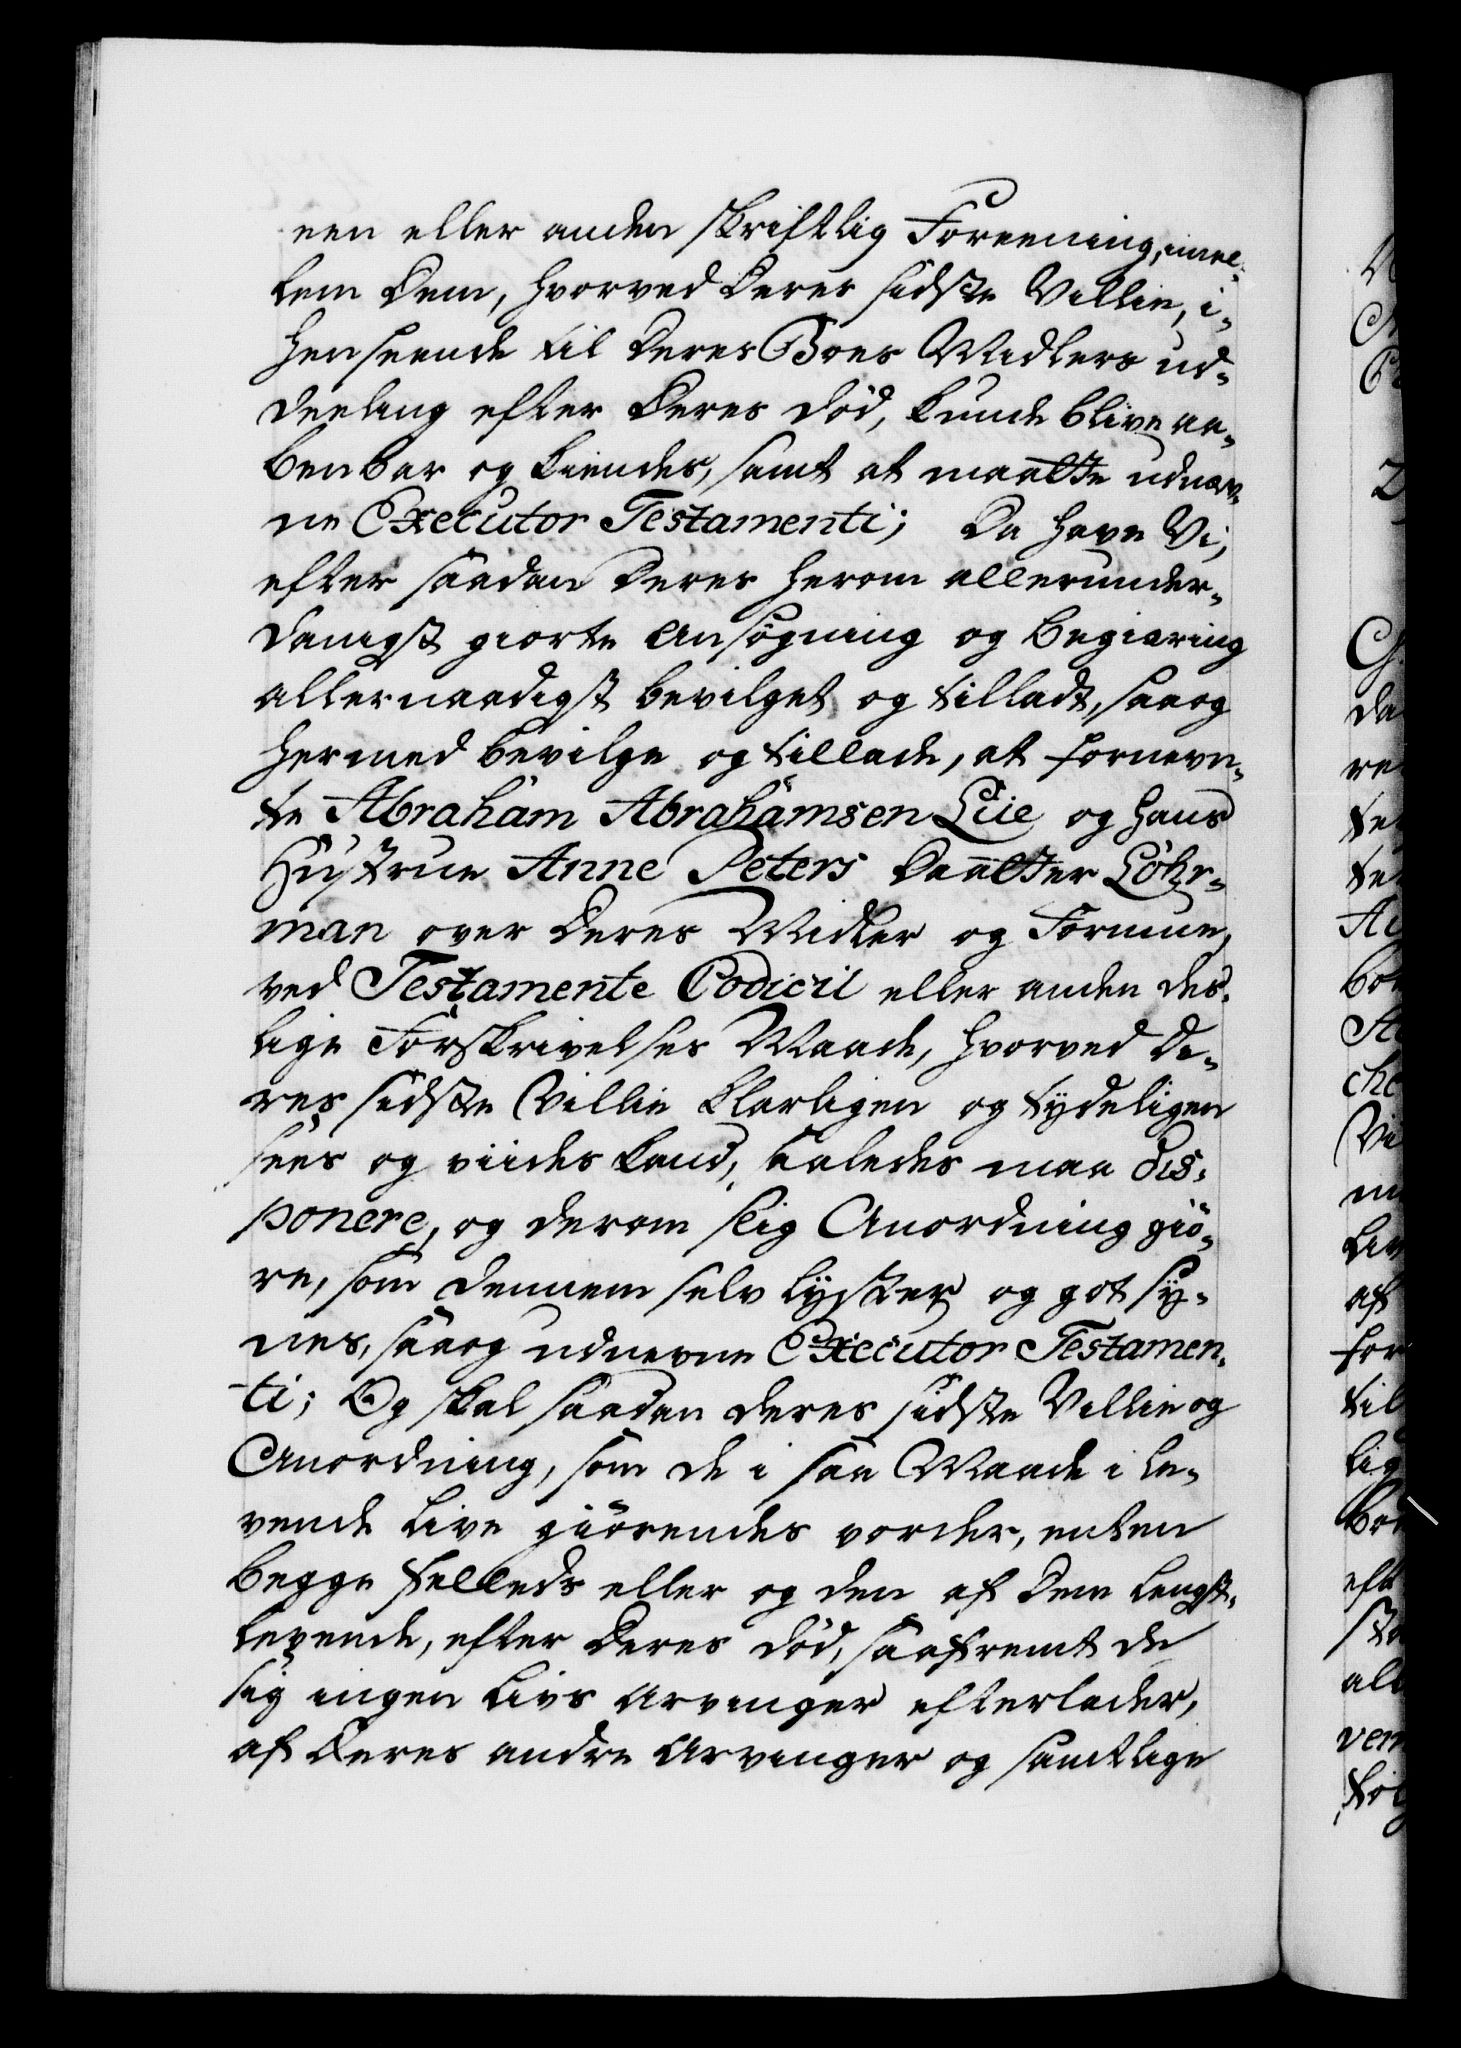 een eller anden skriftlig Foreening, imel-
lem Dem, hvorved Deres sidste Villie, i-
henseende til Deres Boes Midlers ud-
deeling efter Deres død, kunde blive aa-
benbar og kiendes, samt at maatte udnæv-
ne Executor Testamenti; Da have Vi,
efter saadan Deres herom allerunder-
danigst giorte Ansøgning og begiæring
allernaadigst bevilget og tilladt, saa og
hermed bevilge og tillade, at fornevn-
te Abraham Abrahamsen Lüe og hans
Hustrue Anne Peters Daatter Løhr-
man over Deres Midler og Formue,
ved Testamente Codicil eller anden des-
lige Forskrivelses Maade, hvorved De-
res sidste Villie klarligen og tydeligen
sees og viides kand, saaledes maa dis-
ponere, og derom slig Anordning giø-
re, som dennem selv lyster og got sy-
nes, saa og udnevne Executor Testamen-
ti; Og skal saadan deres sidste Villie og
Anordning, som de i saa Maade i le-
vende Live giørendes vorder, enten
begge Felleds eller og den af Dem lengst-
levende, efter Deres død, saafremt de
sig ingen Livs Arvinger efterlader,
af Deres andre Arvinger og samtlige